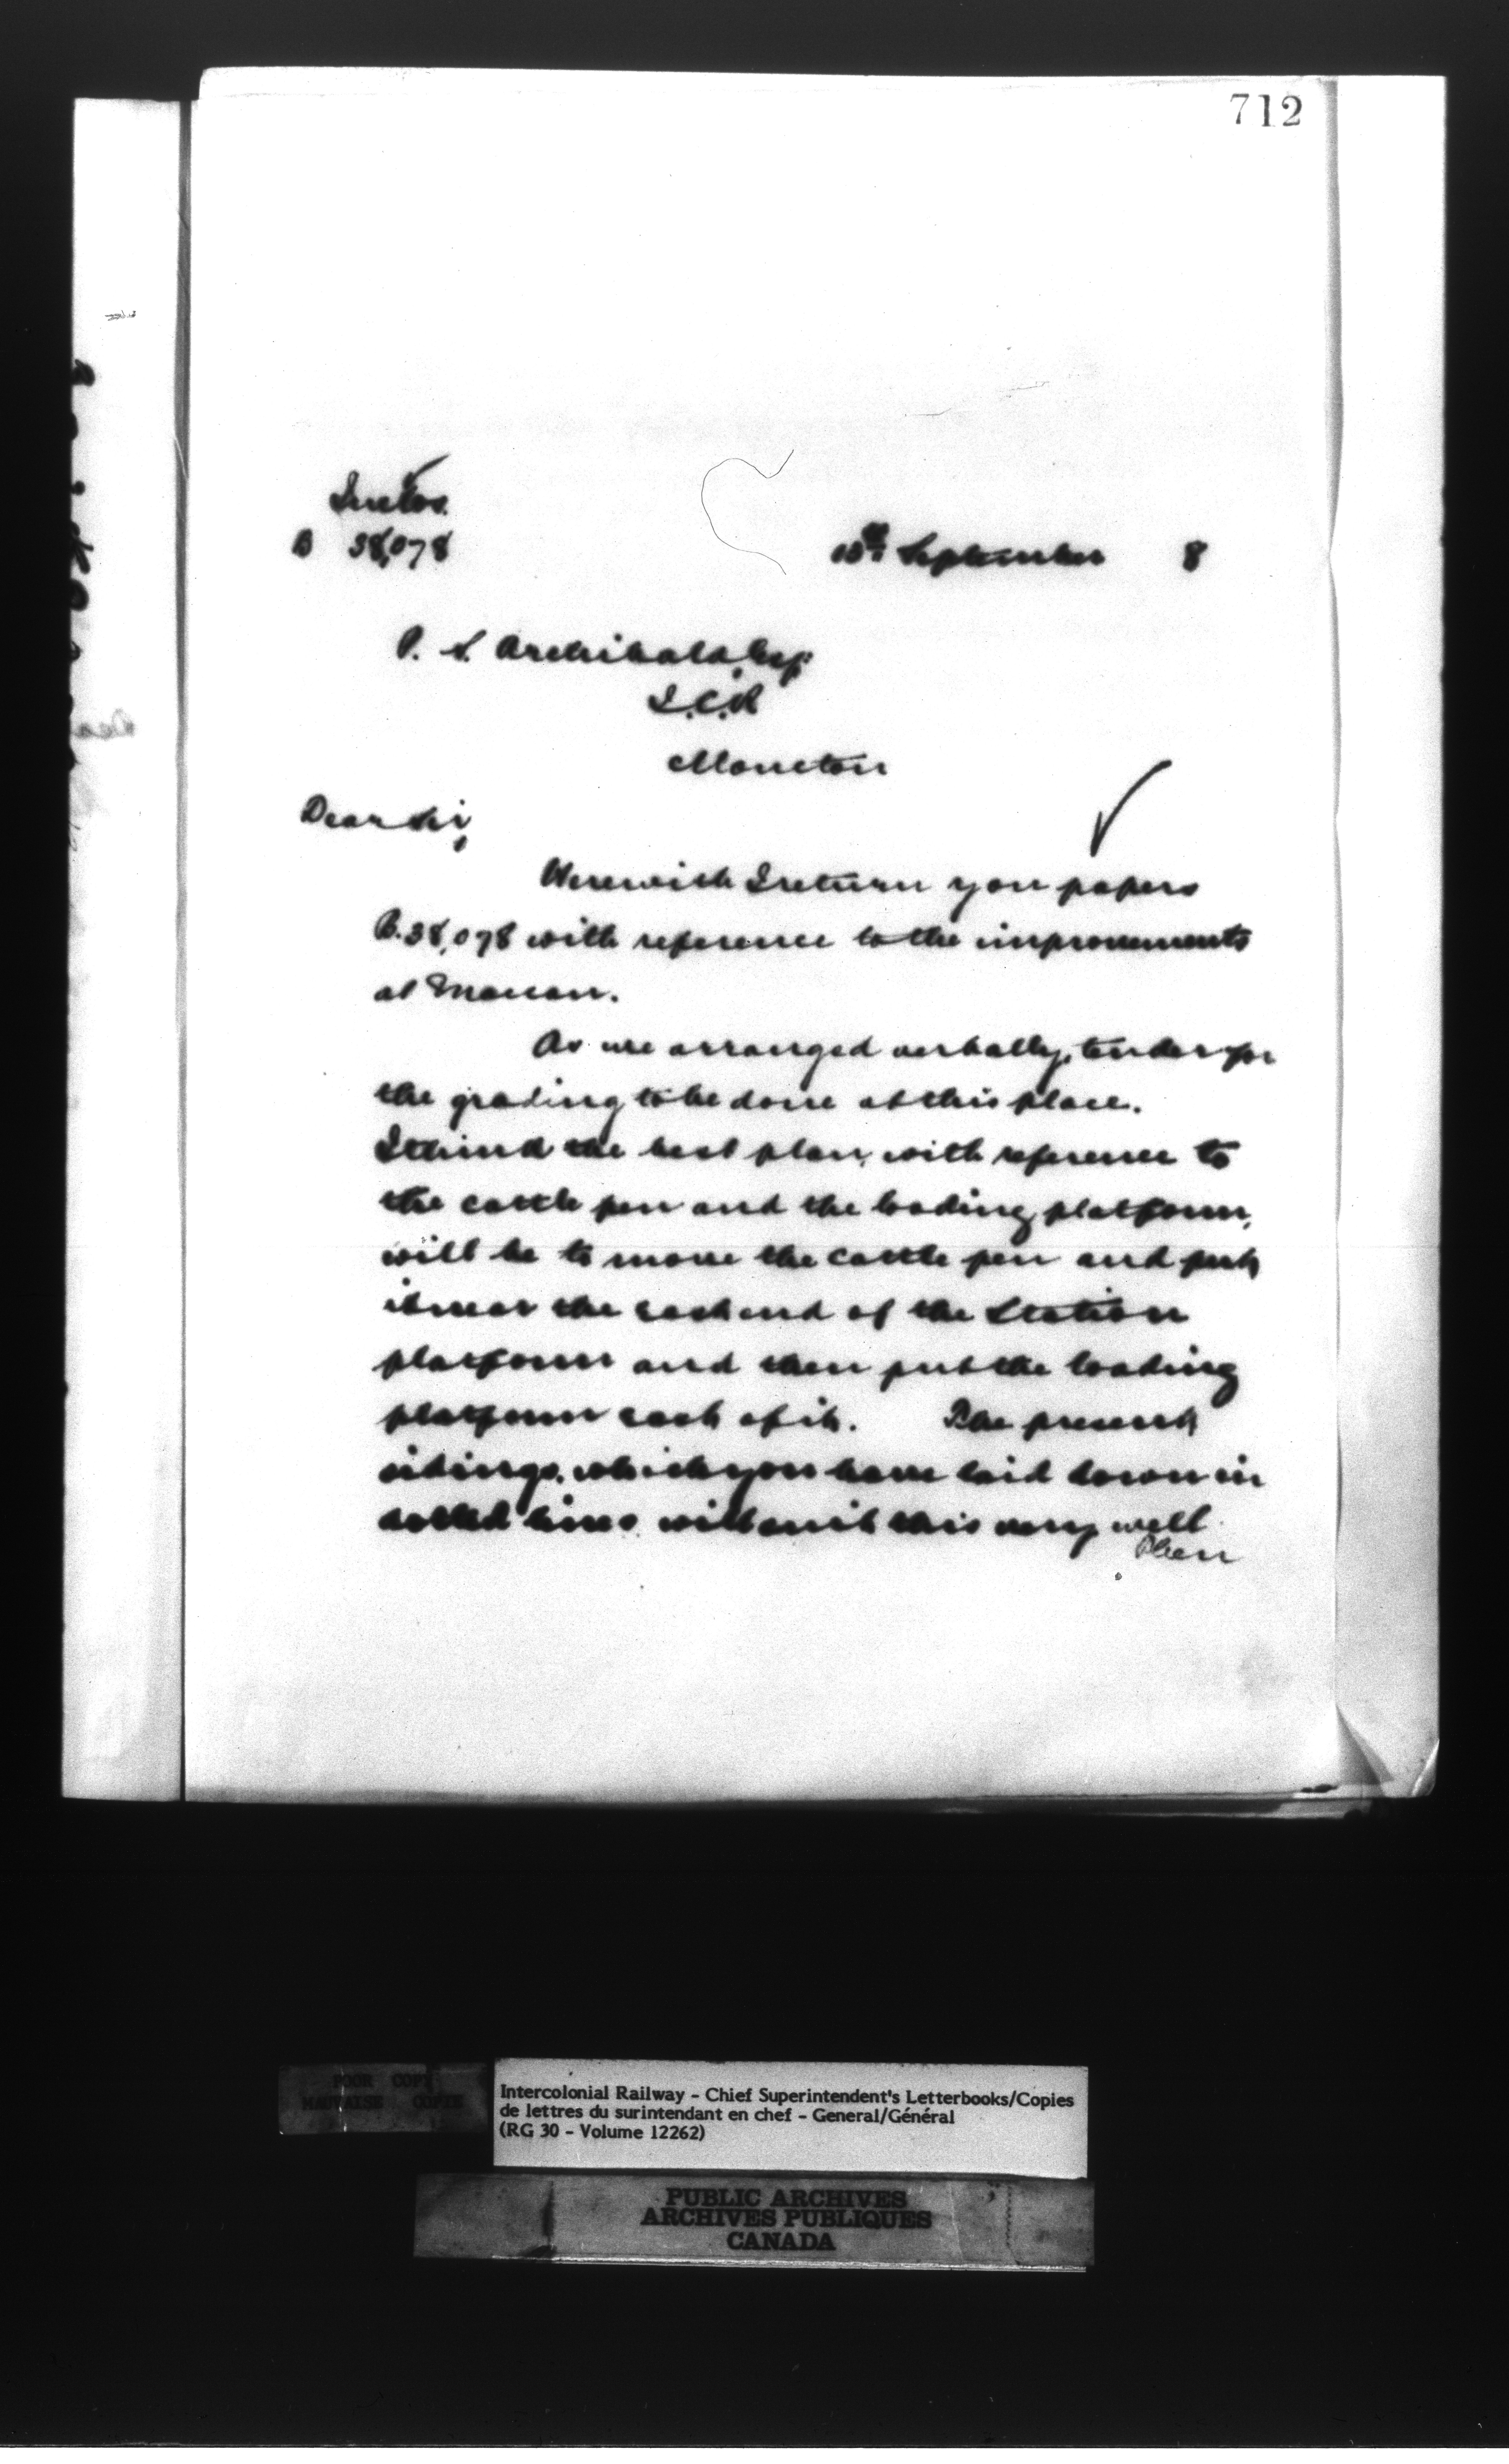 712
Inclos.
B 38,078
13th September 8
P. S. Archibald, Esq.
I.C.R
Moncton
Dear Sir,
Herewith I return you papers
B.38,078 with reference to the improvements
at Maccan.
As we arranged verbally, tender for
the grading to be done at this place.
I think the best plan, with reference to
the cattle pen and the loading platform,
will be to move the cattle pen and put
it near the east end of the Station
platform and then put the loading
platform east of it. The present
sidings, which you have laid down in
dotted lines will suit this very well.
Then
POOR COPY
MAUVAISE COPIE
Intercolonial Railway - Chief Superintendent's Letterbooks/Copies
de lettres du surintendant en chef - General/Général
(RG 30 - Volume 12262)
PUBLIC ARCHIVES
ARCHIVES PUBLIQUES
CANADA